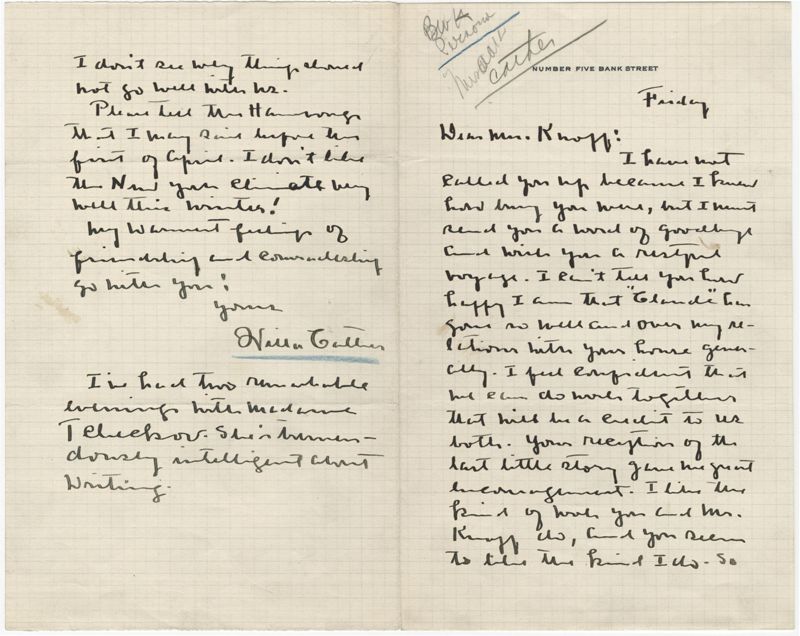 BWK
Personal
Miss
Cather
NUMBER FIVE BANK STREET
Friday
Dear Mrs. Knopf:
I have not
called you up because I knew
how busy you were, but I must
send you a word of goodbye
and wish you a restful
voyage. I can't tell you how
happy I am that "Claude" has
gone so well and over my re-
lations with your house gener-
ally. I feel confident that
we can do work together
that will be a credit to us
both. Your reception of the
last little story gave me great
encouragement. I like the
kind of work you and Mr.
Knopf do, and you seem
to like the kind I do. So
I don't see why things should
not go well with us.
Please tell the Hambourgs
that I may sail before the
first of April. I don't like
the New York climate very
well this winter!
My warmest feelings of
friendship and comradeship
go with you!
Yours
Willa Cather
I've had two remarkable
evenings with Madame
Tchechov. She's tremen-
dously intelligent about
writing.